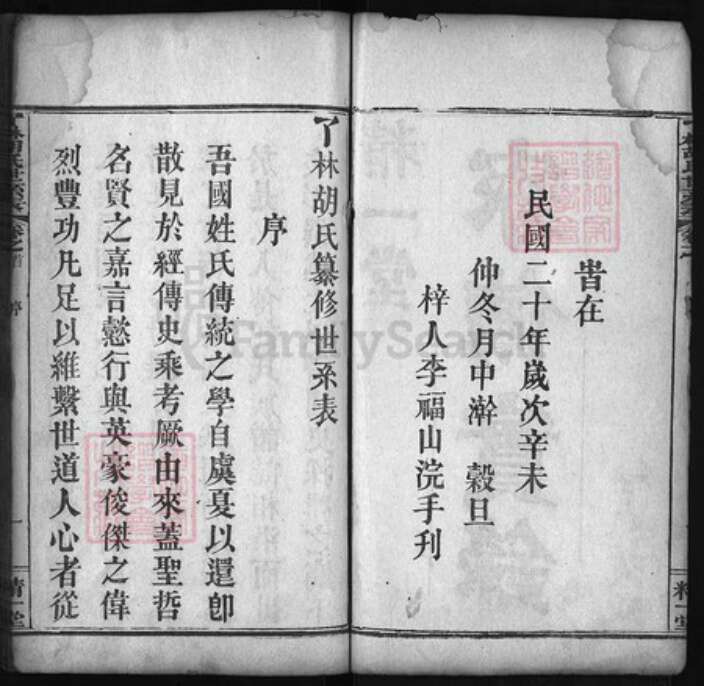 旹在
民國二十年嵗次辛未
仲冬月中澣　榖旦
梓人李福山浣手刋
丅林胡氏纂修世系表
序
吾國姓氏傳統之學自虞夏以還卽
散見於經傳史乘考厥由來蓋聖哲
名賢之嘉言懿行與英豪俊傑之偉
烈豐功凡足以維繫世道人心者從
精一堂
精一堂
FamilySearch